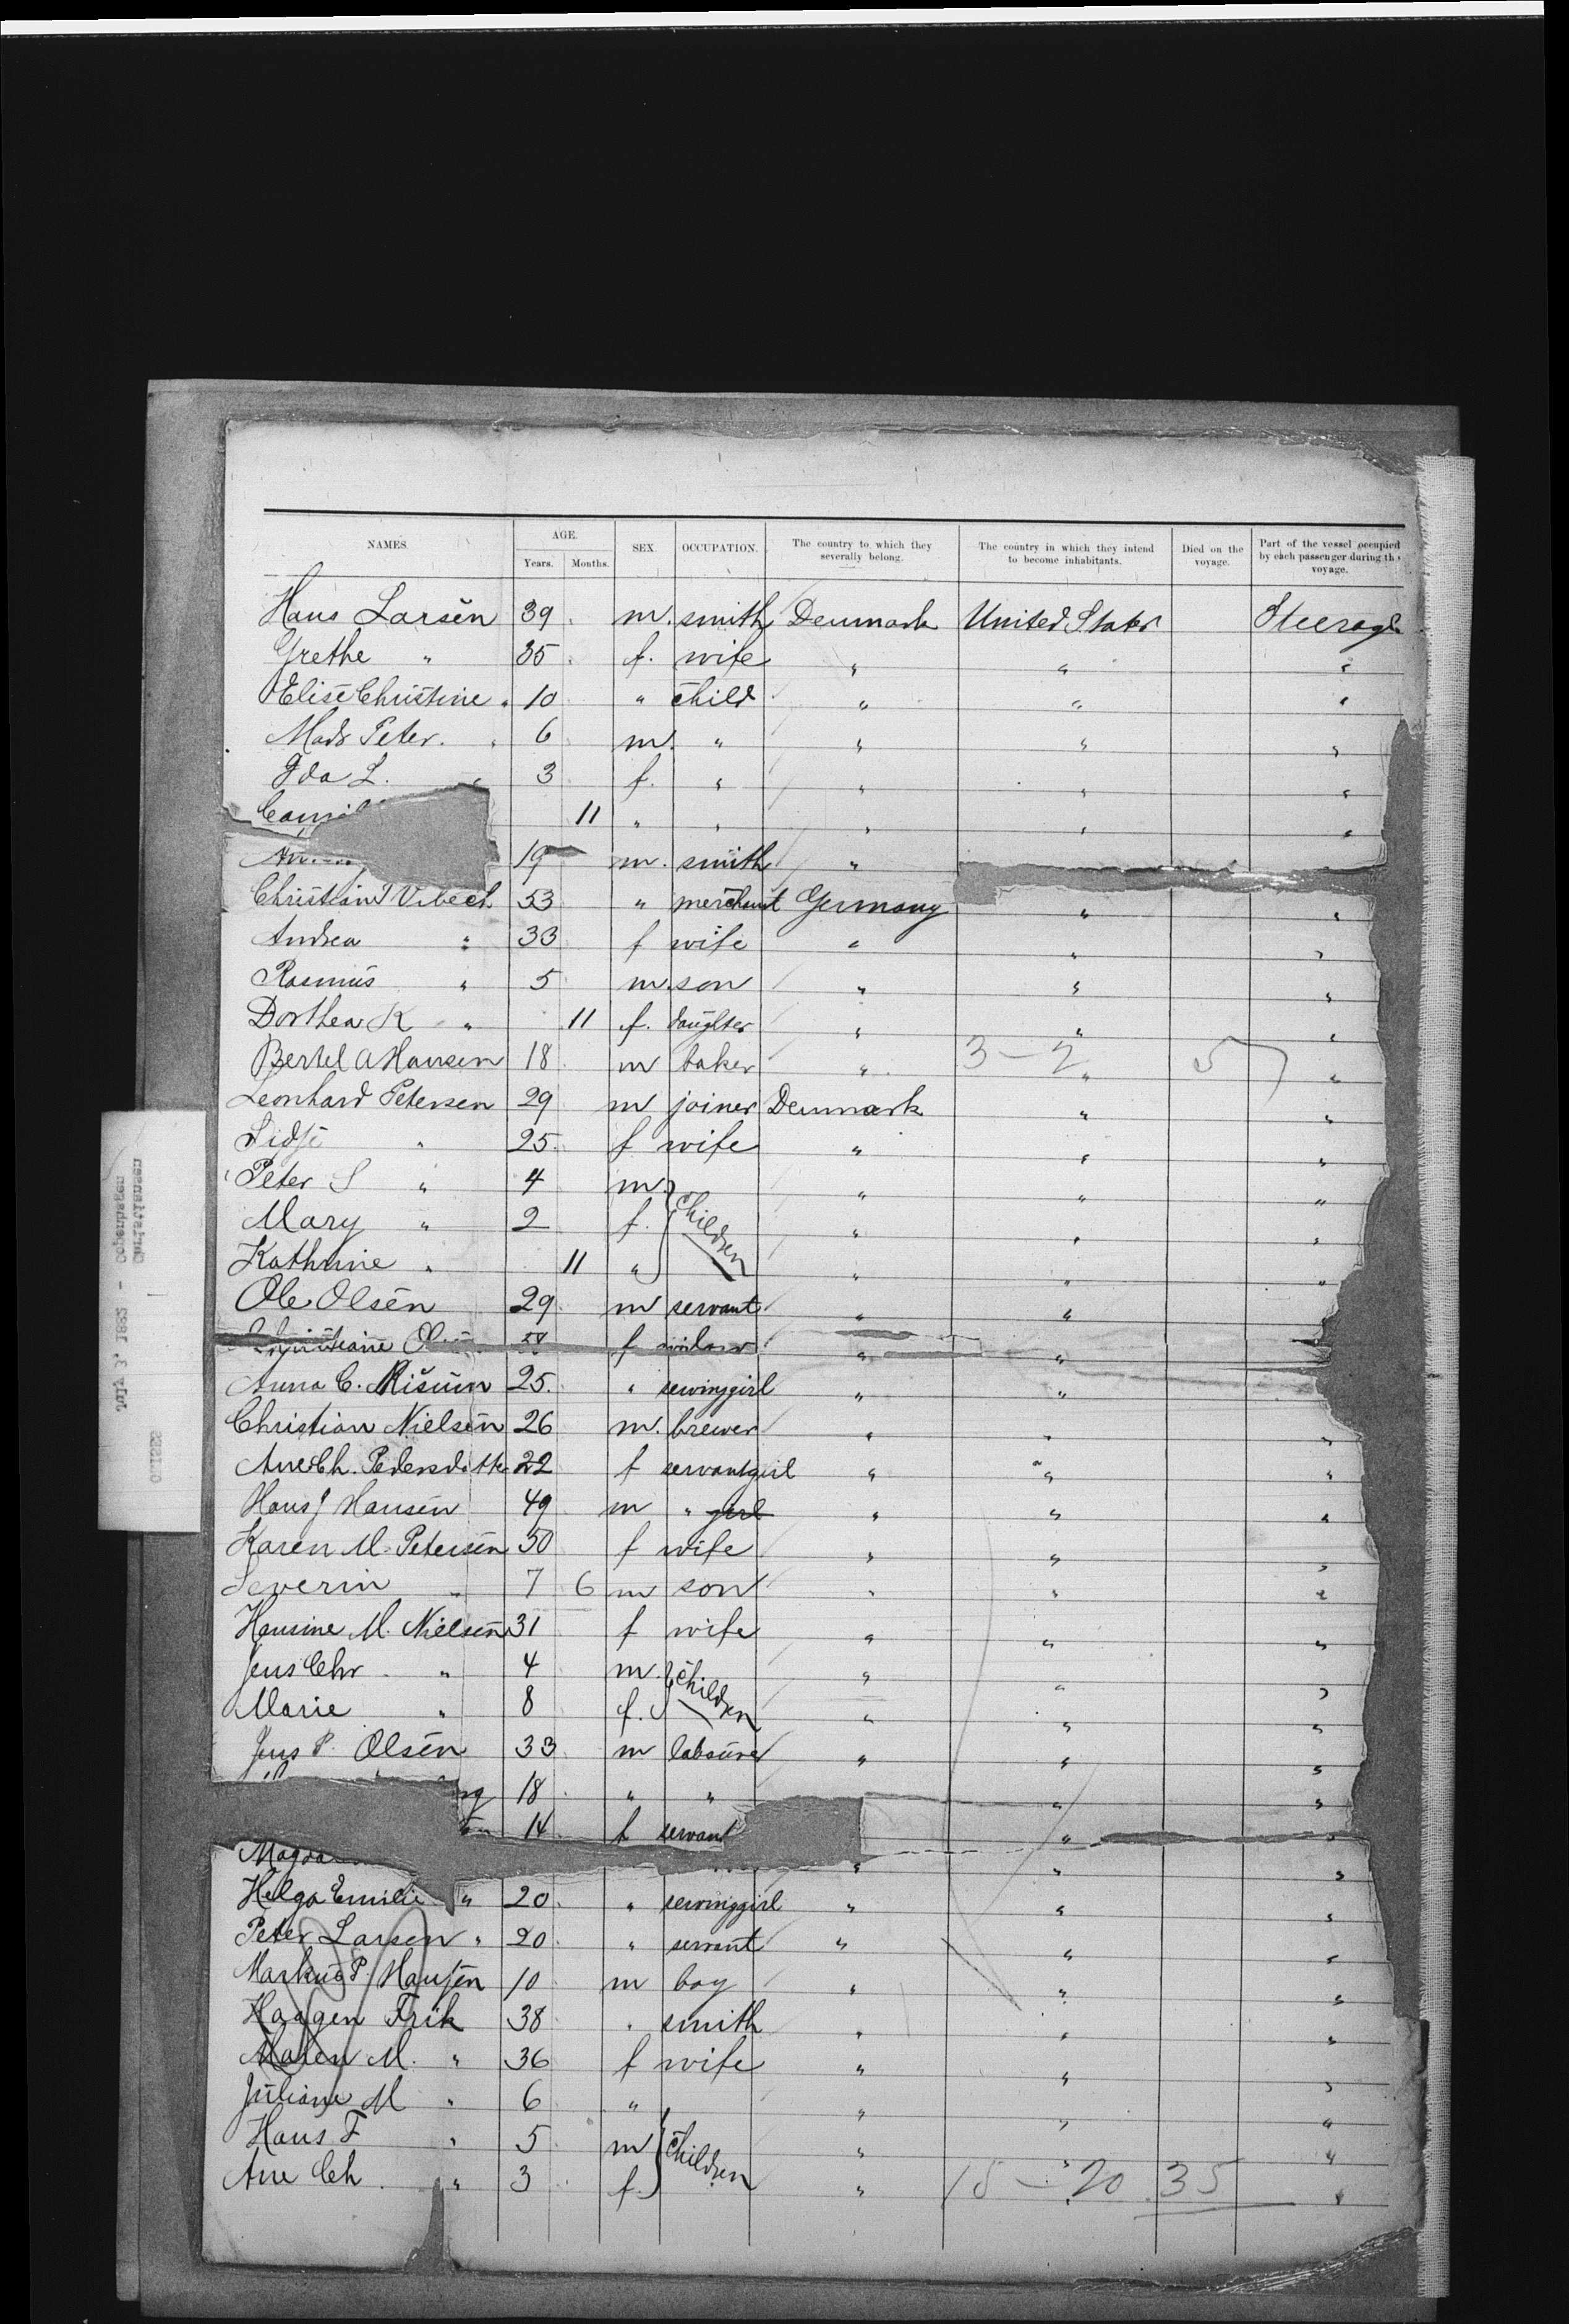 NAMES. AGE. SEX. OCCUPATION. The country to which they severally belong. The country in which they intend to become inhabitants. Died on the voyage. Part of the vessel occupied by each passenger during the voyage.
Years. Months.
Hans Larsen 39 m. smith Denmark United States Steerage
Grethe " 35 f. wife " " "
Elise Christine " 10 " child " " "
Mads Peter. " 6 m. " " " "
Ida L. " 3 f. " " " "
11 " " " " "
19 m. smith "
Christian Vibech 53 " merchant Germany " "
Andrea " 33 f wife " " "
Rasmus " 5 m. son " " "
Dorthea K " 11 f. daughter " " "
Bertel A Hansen 18 m baker " 3 - 2 " 5 "
Leonhard Petersen 29 m joiner Denmark " "
" 25 f wife " " "
Peter S " 4 m " " "
Mary " 2 f. children " " "
Kathrine " 11 " " " "
Ole Olsen 29 m servant " " "
58 f widow " "
Anna C. 25 " sewinggirl " "
Christian Nielsen 26 m. brewer " " "
Ane Ch. Pedersdatter 22 f servantgirl " " "
Hans J Hansen 49 m " girl " " "
Karen M. Petersen 50 f wife " " "
Severin " 7 6 m son " " "
Hansine M. Nielsen 31 f wife " " "
Jens Chr " 4 m. children " " "
Marie " 8 f. " " "
Jens P. Olsen 33 m labourer " " "
18 " " " "
14 f servant " "
" " "
Helga Emilie " 20 " sewinggirl " " "
Peter Larsen " 20 " servant " " "
Markus P. Hansen 10 m boy " " "
Haagen Frik 38 " smith " " "
Maren M. " 36 f wife " " "
Juliane M " 6 " " " "
Hans F " 5 m children " " "
Ane Ch. " 3 f. " 15 - 20 35 "